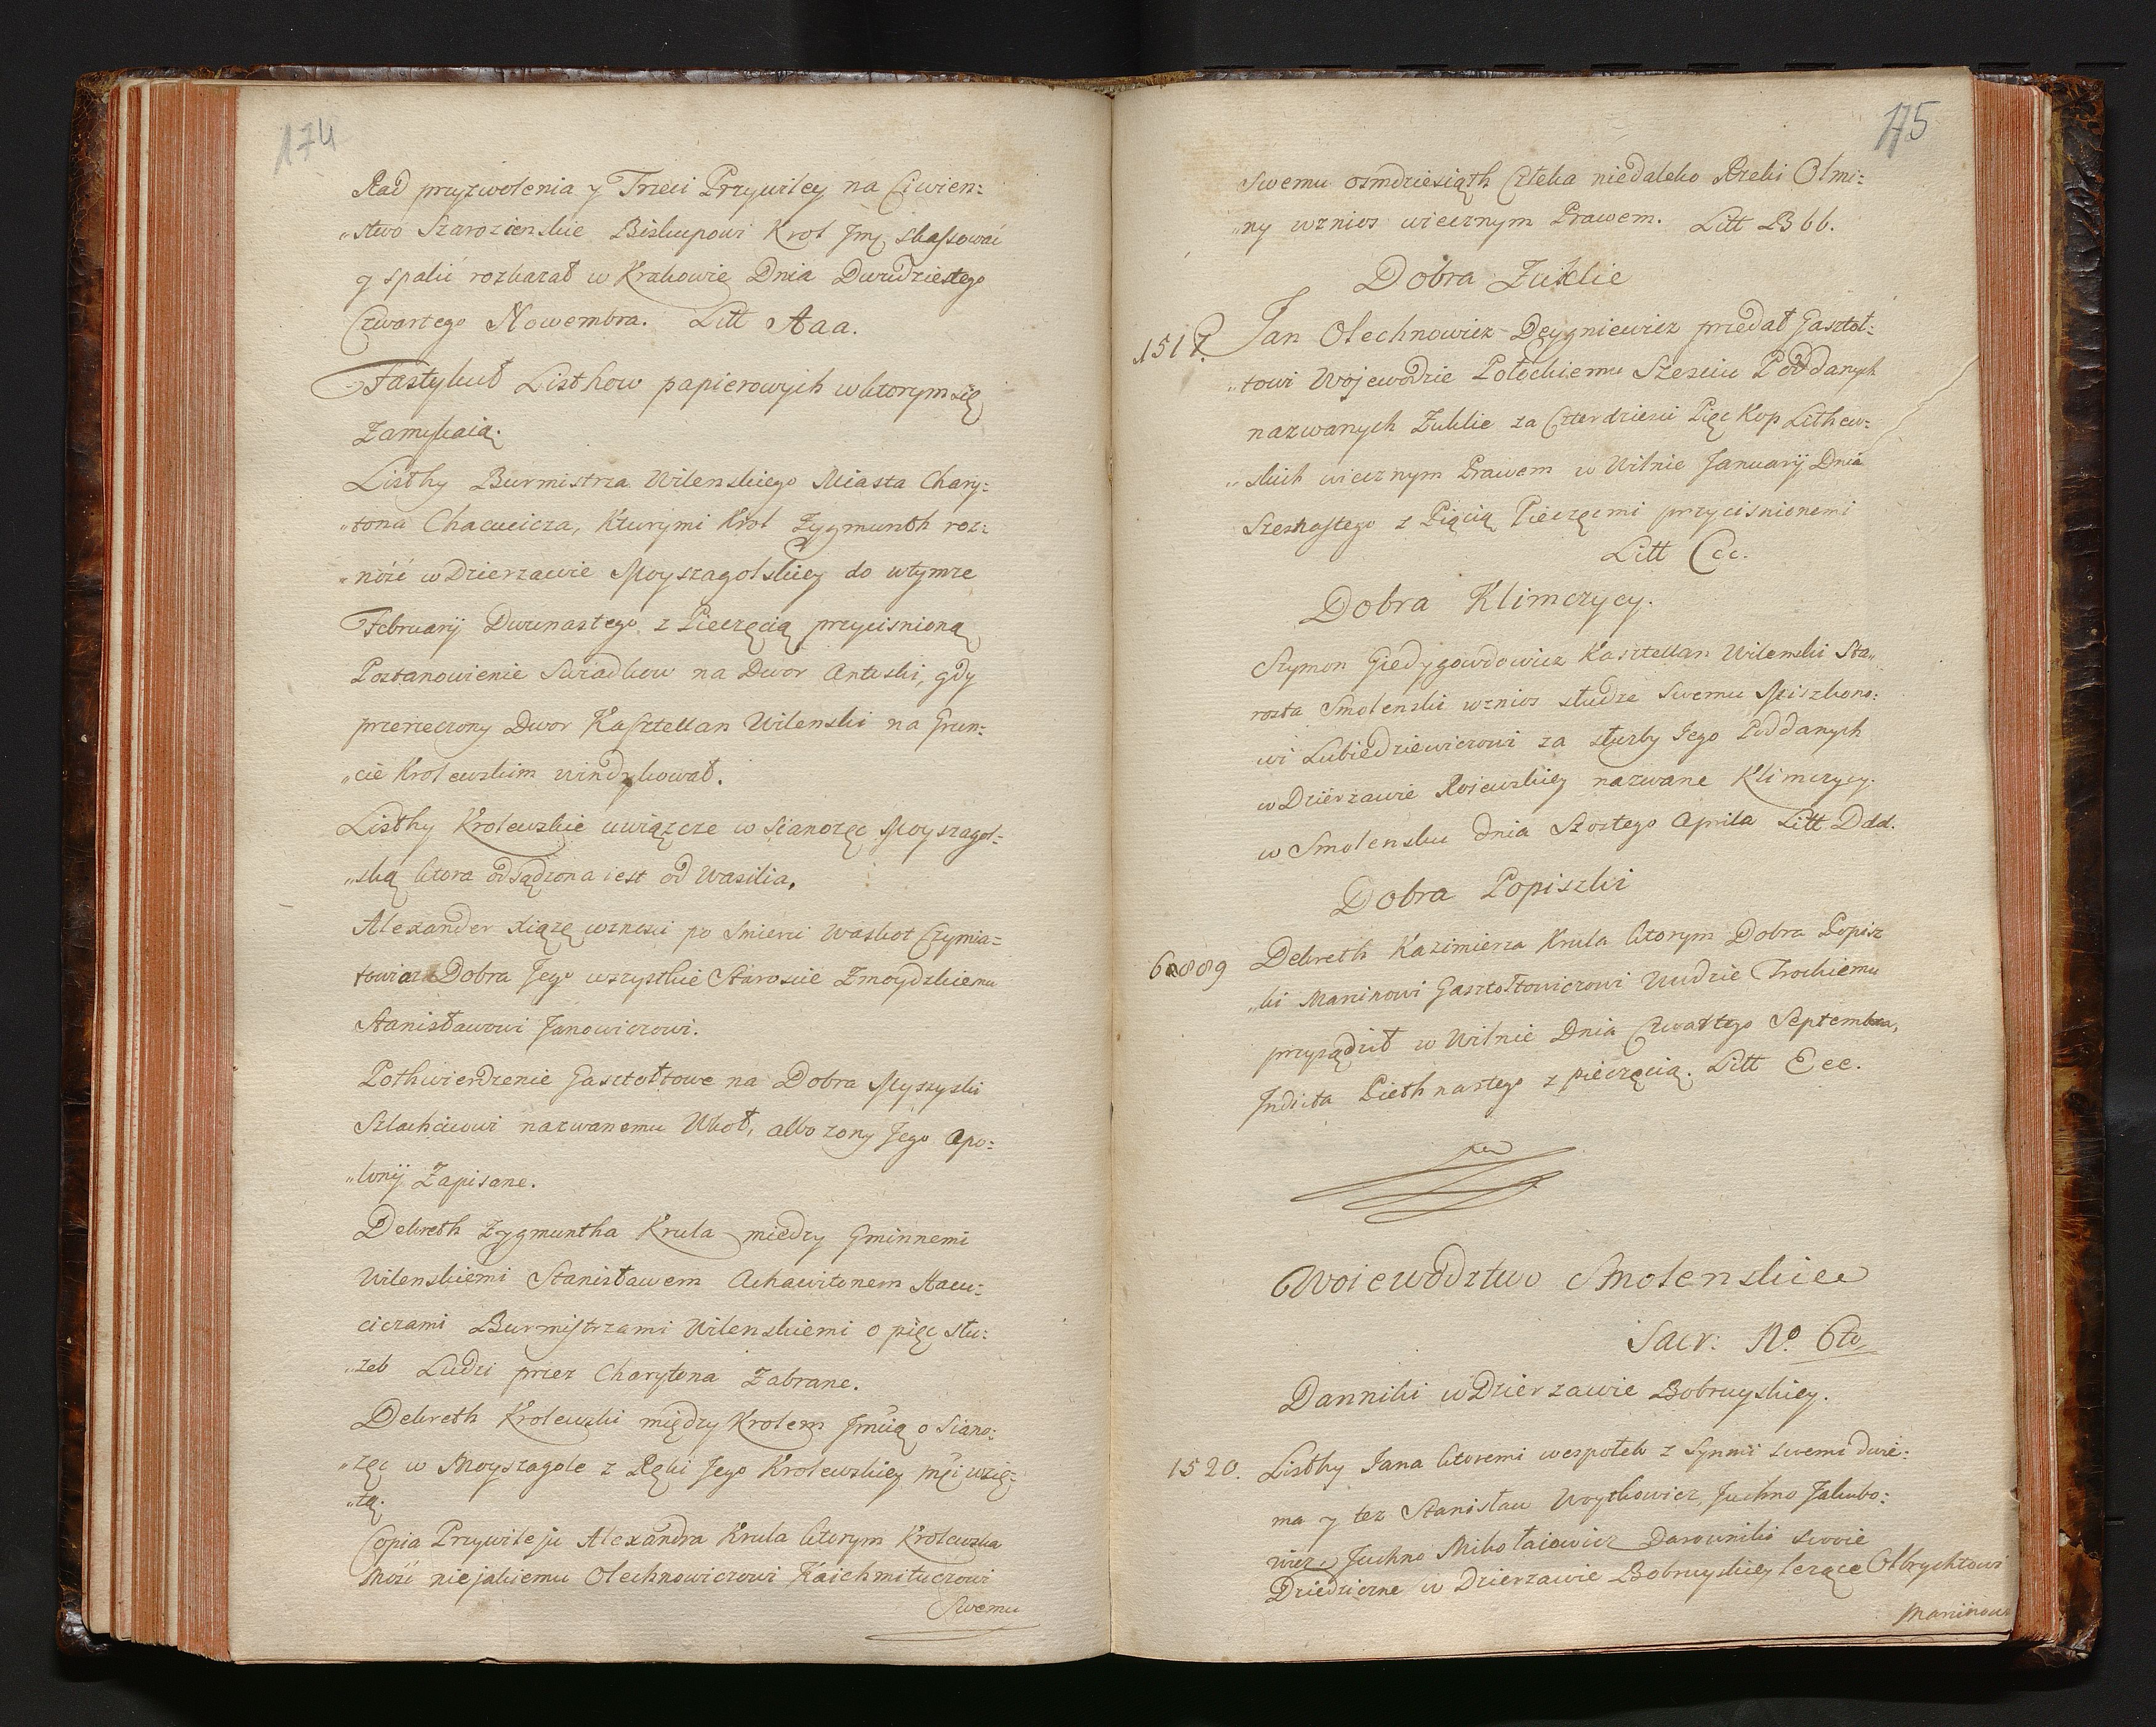 174
Rad przyzwolenia y Trzeci Przywiley na Ciwien:
„stwo Szarozienskie Biskupowi Krol Jmć skassować
y spalić rozkazał w Krakowie Dnia Dwudziestego
Czwartego Nowembra. Litt Aaa.
Fastykuł Listhow papierowych wktorym się
Zamykaią.
Listhy Burmistrza Wilenskiego Miasta Chary:
„tona Chacucicza, Kturymi Krol Zygmunth roz:
„nóść w Dzierzawie Moyszagolskiey do wtymze
Februarij Dwunastego z Pieczęcią przycisnioną
Postanowienie Swiadkow na Dwor Anteski, gdy
przerzeczony Dwor Kasztellan Wilenski na Grun:
„cie Krolewskim windykował.
Listhy Krolewskie uwiązcze w Sianozęć Moyszagol:
„ską ktora odsądzona iest od Wasilia.
Alexander Xiąze wznosi po Smierci Waskot Czymia:
towicza Dobra Jego wszystkie Staroscie Zmoydzkiemu
Stanisławowi Janowiczowi.
Pothwierdzenie Gasztołtowe na Dobra Myszyski
Szlachcicowi nazwanemu Wkoł, albo zony Jego Apo:
„lonij Zapisane.
Dekreth Zygmuntha Krula między Gminnemi
Wilenskiemi Stanisławem Achawitonem Hacu:
ciczami Burmistrzami Wilenskiemi o pięc słu:
„zeb Ludzi przez Charytona Zabrane.
Dekreth Krolewski między Krolem Jmcią o Siano:
„zęc w Moyszagole z Ręki Jego Krolewskiey mci wzię:
„tą.
Copia Przywileju Alexandra Krula ktorym Krolewska
Mość niejakiemu Olechnowiczowi Kaichmituczowi
Swemu
175
Swemu osmdziesiąth Czleka niedaleko Rzeki Olmi:
„ny wznios wiecznym Prawem. Litt Bbb.
Dobra Zuklie
1517. Jan Olechnowicz Deygniewicz przedał Gasztoł:
„towi Wojewodzie Połockiemu Szesciu Poddanych
nazwanych Zuklie za Czterdziesci Pięc Kop Lithew:
„skich wiecznym Prawem w Wilnie Januarij Dnia
Szesnastego z Pięcią Pieczęcmi przycisnionemi
Litt Ccc.
Dobra Klimczycy.
Szymon Giedygowdowicz Kasztellan Wilenski Sta„
rosta Smolenski wznios słudze Swemu Miszkono:
wi Lubiedziewiczowi za słuzby Jego Poddanych
w Dzierzawie Rosewskiey nazwane Klimczycy.
w Smolensku dnia Szostego Aprila Litt Ddd.
Dobra Popiszki
6889 Dekreth Kazimierza Krula ktorym Dobra Popisz
„ki Marcinowi Gasztołtowiczowi Wudzie Trockiemu
przysądził w Wilnie Dnia Czwartego Septembra,
Indicta Piethnastego z pieczęcią. Litt Eee.
Woiewodztwo Smolenskiee
Sacr: No. 6to
Danniki w Dzierzawie Bobruyskiey.
1520. Listhy Jana ktoremi wespołek z Synmi swemi dwie:
ma y tez Stanisław Woytkowicz, Juchno Jakubo:
wicz, Juchno Mikołaiowicz Darowniki swoie
Dziedziczne w Dzierzawie Bobruyskiey lezące Olbrychtowi
Marcinow